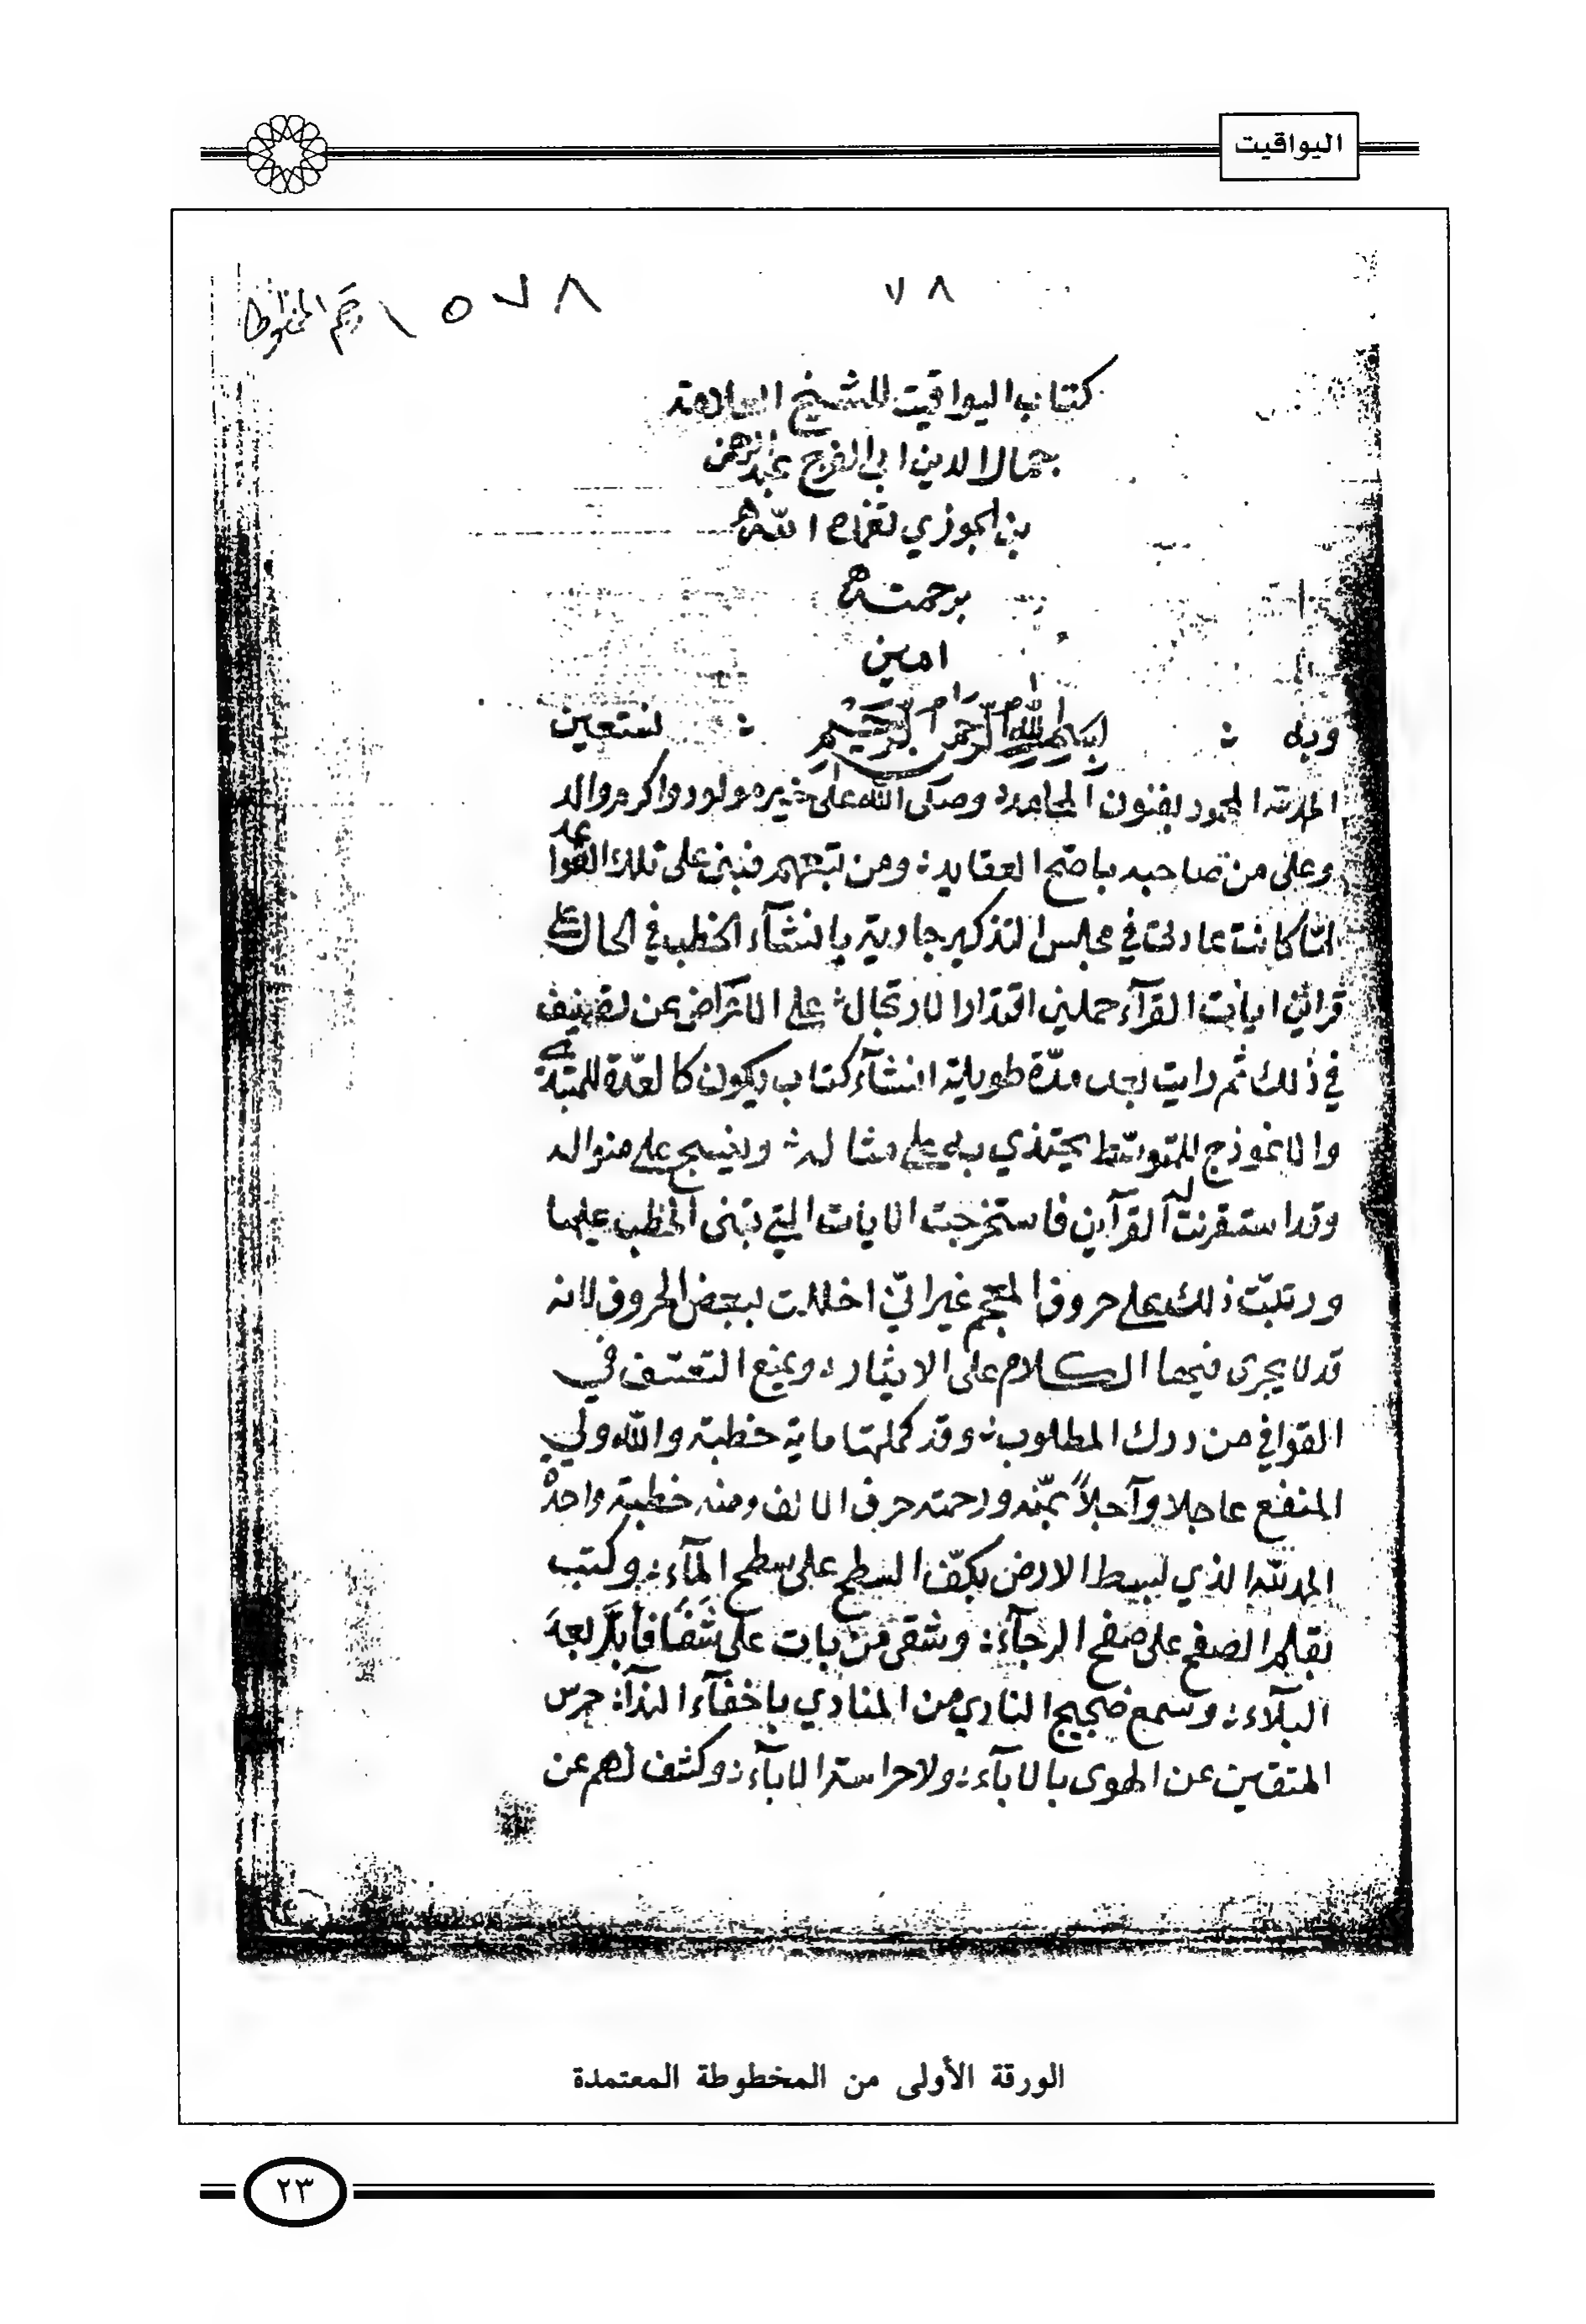 اليواقيت
٧٨
رقم المخطوط ١٥٧٨
كتاب اليواقيت للشيخ العلامة
جمال الدين ابي الفرج عبد الرحمن
بن الجوزي تغمده الله
برحمته
امين
وبه بسم الله الرحمن الرحيم نستعين
الحمد لله المحمود بفنون المحامد وصلى الله على خير مولود واكرم والد
وعلى من صاحبه باصح العقايد ومن تبعهم فبنى على تلك القواعد
لما كانت عادتي في مجلس التذكير جارية بانشآء الخطب في الحال على
قرائن ايات القرآء حملني اقتدار الارتجال على الاعراض عن تصنيف
في ذلك ثم رايت بعد مدّة طويلة انشآء كتاب يكون كالعدّة للمبتدي
والانموذج للمتوسّط يحتذي به على مثاله وينسج على منواله
وقد استقريت له القرآن فاستخرجت الايات التي تبنى الخطب عليها
ورتبّت ذلك على حروف المعجم غير انّي اخللت ببعض الحروف لانه
قد لا يجرى فيها الكلام على الايثار ويمنع التعسّف في
القوافي من درك المطلوب وقد كملتها ماية خطبة والله ولي
النفع عاجلا وآجلاً بمنّه ورحمته حرف الالف ومنه خطبة واحدة
الحمد لله الذي بسط الارض بكفّ السطح على سطح المآء وكتب
بقلم الصفح على صفح الرجآء وشفى من بات على شفا فأبلّ بعد
البلآء وسمع ضجيج النادي من المنادي باخفآء الندآ حرس
المتقين عن الهوى بالابآء ولا حراسة الابآء وكشف لهم عن
الورقة الأولى من المخطوطة المعتمدة
٢٣